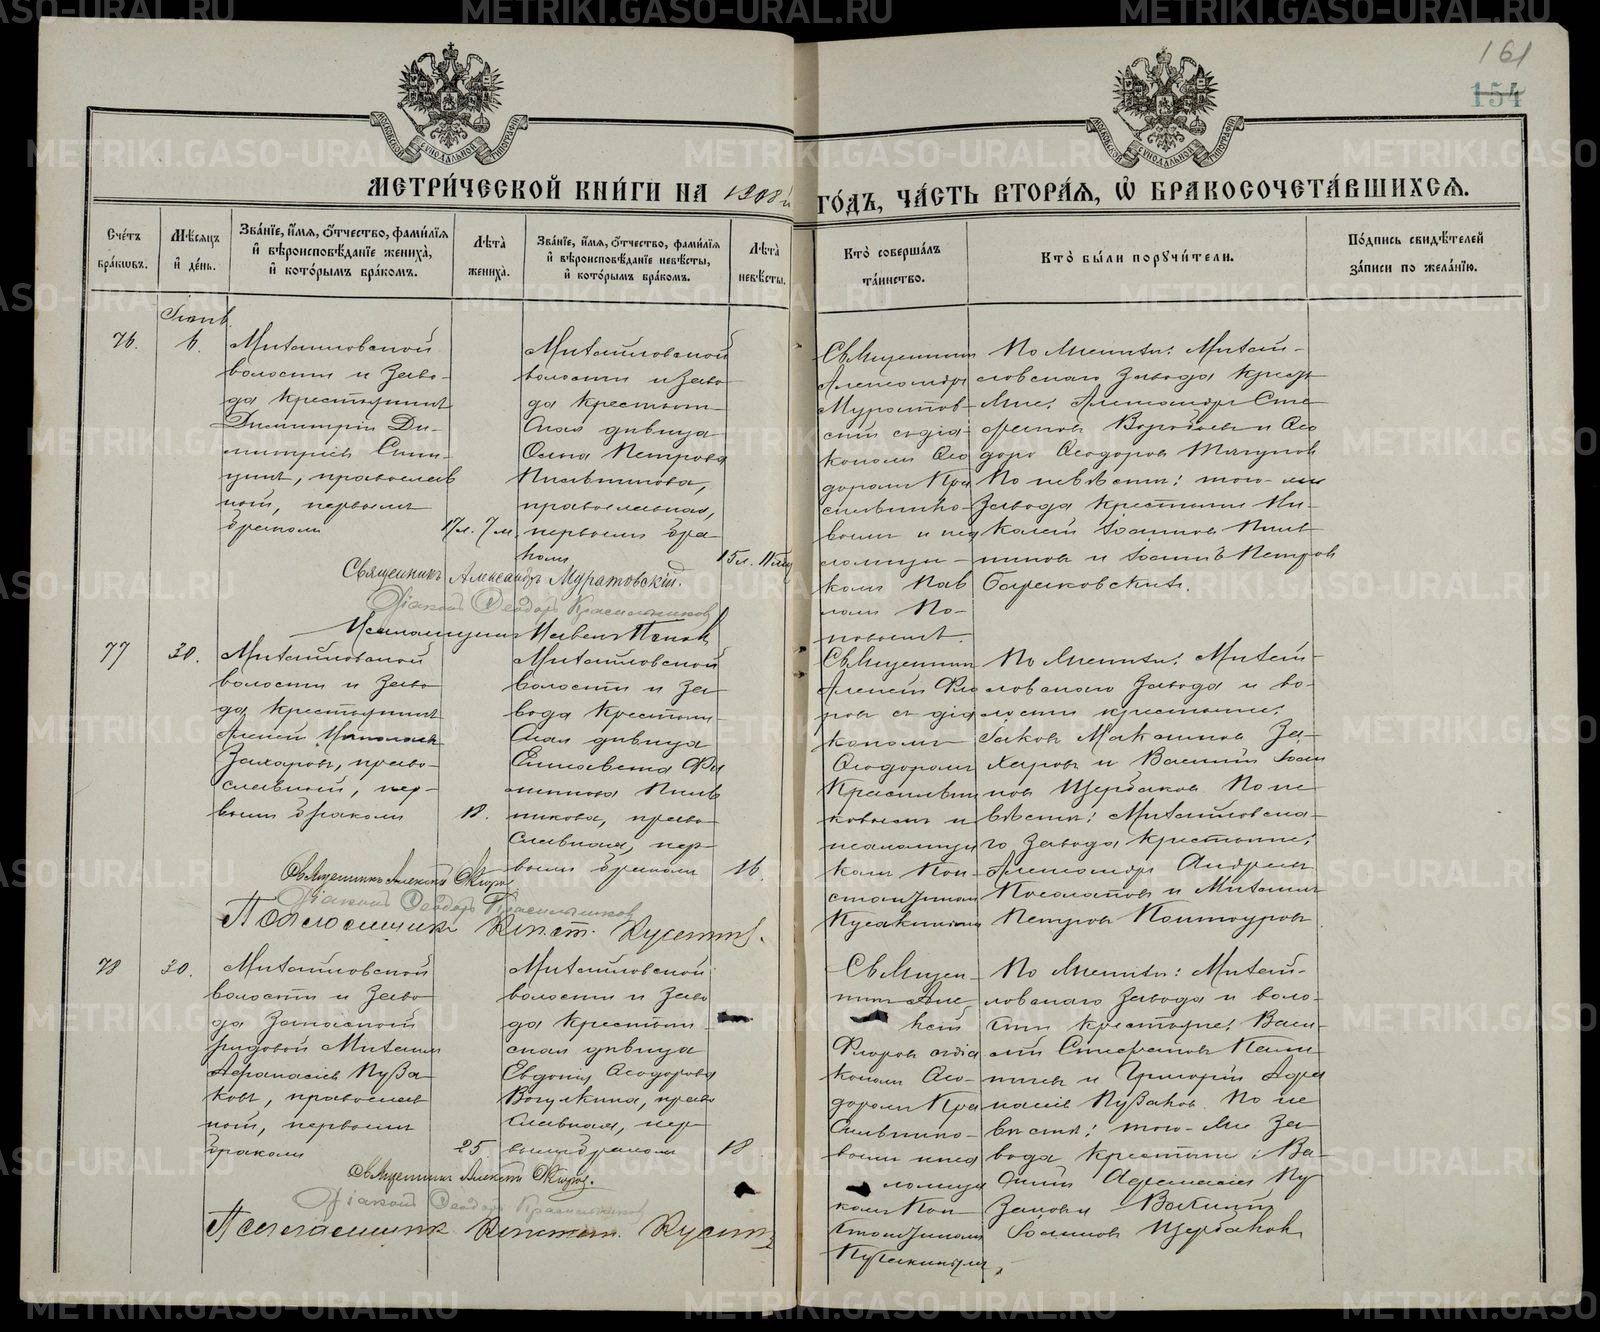 161
154
МЕТРИ́ЧЕСКОЙ КНИ́ГИ НА 1908 й ГО́ДЪ, ЧА́СТЬ ВТОРА́Я, Ѡ҆ БРАКОСОЧЕТА́ВШИХСЯ.
Сче́тъ бра́кѡвъ.
Мѣ́сяцъ и҆ де́нь.
Зва́нїе, и҆́мя, ѻ҆́тчество, фами́лїя и҆ вѣроисповѣ́данїе жениха̀, и҆ кото́рымъ бра́комъ.
Лѣ́та̀ жениха̀.
Зва́нїе, и҆́мя, ѻ҆́тчество, фами́лїя и҆ вѣроисповѣ́данїе невѣ́сты, и҆ кото́рымъ бра́комъ.
Лѣ́та̀ невѣ́сты.
Кто̀ соверша́лъ та́инство.
Кто̀ бы́ли порꙋчи́тели.
По́дпись свидѣ́телей за́писи по жела́нїю.
Январ.
76.
6.
Михайловской
волости и Заво-
да крестьянинъ
Димитрій Ди-
митріев
православ
ной, первымъ
бракомъ
17л. 7м.
Михайловской
волости и заво
да крестьян-
ская дѣвица
Петрова
православная,
первымъ бра-
комъ
15л. 11м
Священникъ
Александръ
Муратов-
скій съ діа-
кономъ Ѳео
доромъ Кра
сильнико-
вымъ и пса
ломщи-
комъ Пав
ломъ По-
повымъ.
По женихѣ: Михай-
ловскаго Завода крестья
не: Александръ Сте
фановъ Воробьевъ и Ѳео
доръ Ѳеодоровъ
По невѣстѣ: того-же
Завода крестьяне Ни-
колай Іоанновъ
и Іоаннъ Петров
Священникъ Александръ Муратовскій.
Діаконъ Ѳеодоръ Красильников
Псаломщикъ Павелъ Попов
77
30.
Михайловской
волости и Заво
да крестьянинъ
Алексѣй
Захаровъ, право-
славный, пер-
вымъ бракомъ
18.
Михайловской
волости и За
вода крестьян-
ская дѣвица
Елисавета Фи
никова, право-
славная, пер-
вымъ бракомъ
16.
Священникъ
Алексѣй Фло
ровъ съ діа
кономъ
Ѳеодоромъ
Красильни
ковымъ и
псаломщи
комъ Кон-
стантиномъ
Кусакинымъ
По женихѣ: Михай-
ловскаго Завода и во-
лости крестьяне:
Іаковъ Максимов За-
харовъ и Василій Іоан
новъ Щербаковъ По не
вѣстѣ: Михайловска-
го Завода крестьяне:
Александръ Андреевъ
и Михаилъ
Петровъ
Священникъ Алексѣй Флоров
Діаконъ Ѳеодоръ Красильников
Псаломщикъ Конст. Кусакинъ.
78
30.
Михайловской
волости и Заво
да Запасной
рядовой Михаилъ
Аѳанасіев Пуза-
ковъ, православ
ной, первымъ
бракомъ
25.
Михайловской
волости и Заво
да крестьян-
ская дѣвица
Евдокія Ѳеодорова
Вогулкина, право
славная, пер-
вымъ бракомъ
18
Священ-
никъ Але
ксѣй
Флоровъ съ діа
кономъ Ѳео-
доромъ Кра
сильнико-
вымъ и пса
ломщи
комъ Кон-
стантиномъ
Кусакинымъ.
По женихѣ: Михай-
ловскаго Завода и воло-
сти крестьяне: Васи-
лій Стефановъ
и Григорій Аѳа
насіев Пузаковъ. По не
вѣстѣ: того-же За
вода крестьяне: Ва-
силій Аѳанасіев Пу
заковъ и
Іоанновъ Щербаковъ
Священникъ Алексѣй Флоров.
Діаконъ Ѳеодоръ Красильников
Псаломщикъ Констант. Кусакин
METRIKI.GASO-URAL.RU